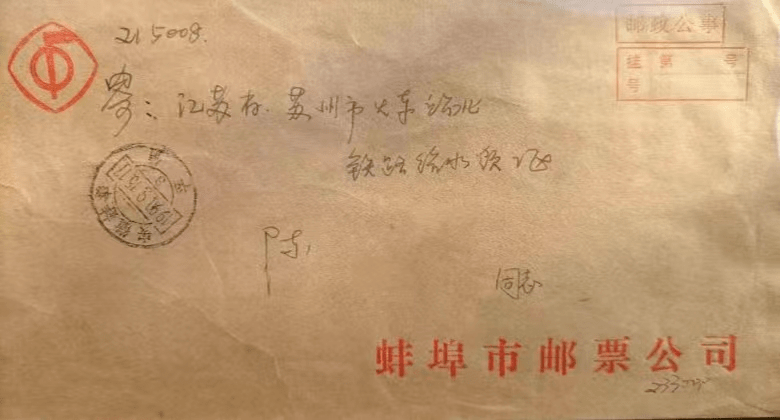 215008.
邮政公事
挂 第 号
号
寄：江苏省. 苏州市火车站北
铁路给水领工区
陈
同志
蚌埠市邮票公司